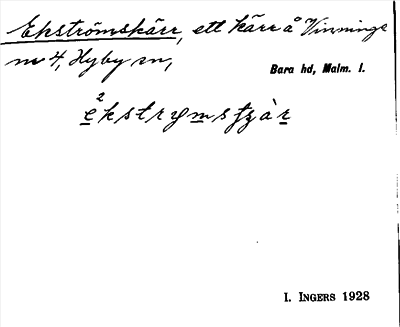 Ekströmskärr, ett kärr å Vinninge
nr 4, Hyby sn,
Bara hd, Malm. l.
I. INGERS 1928